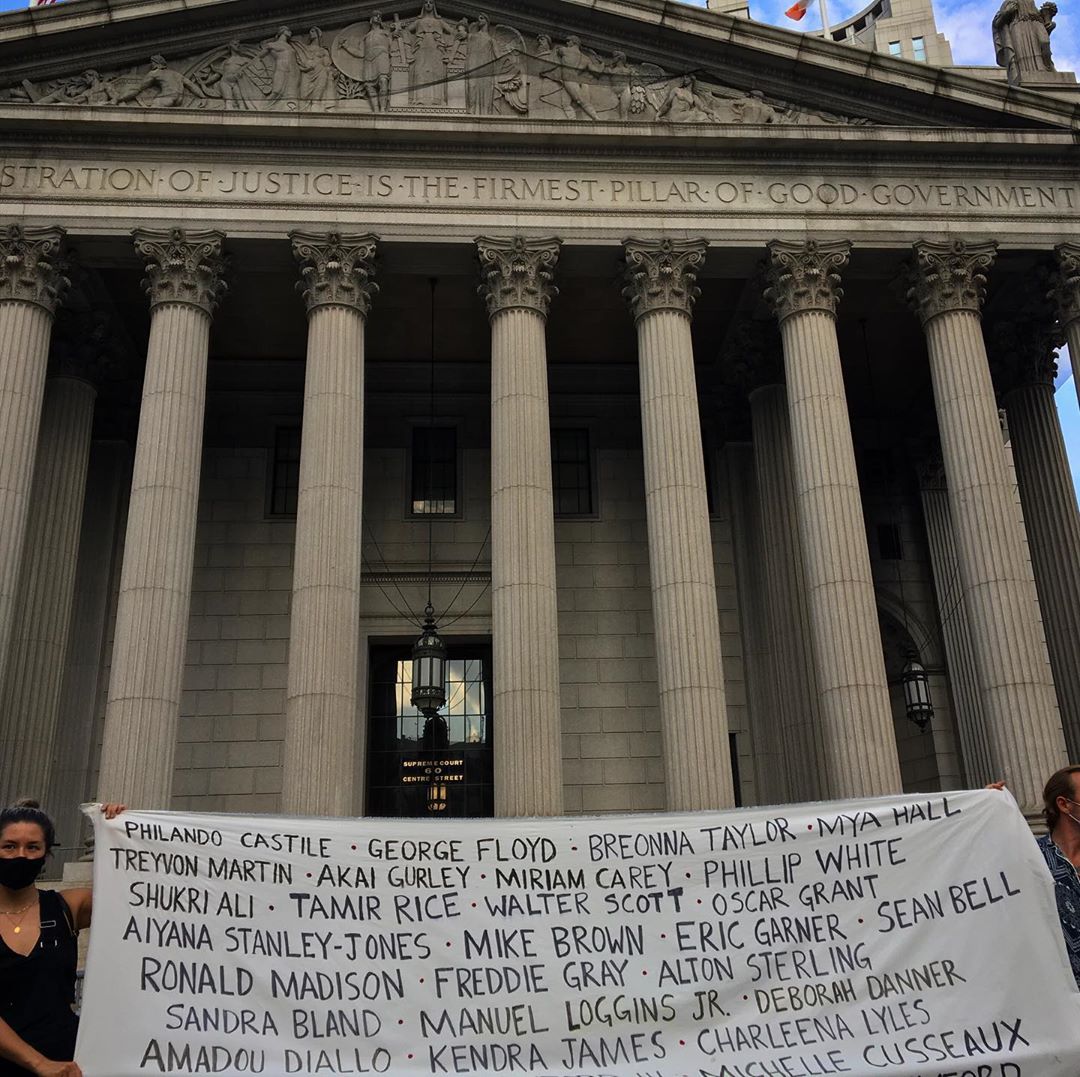 STRATION·OF·JUSTICE·IS·THE·FIRMEST·PILLAR·OF·GOOD·GOVERNMENT
SUPREME COURT
60
CENTRE STREET
PHILANDO CASTILE · GEORGE FLOYD · BREONNA TAYLOR · MYA HALL
TREYVON MARTIN · AKAI GURLEY · MIRIAM CAREY · PHILLIP WHITE
SHUKRI ALI · TAMIR RICE · WALTER SCOTT · OSCAR GRANT
AIYANA STANLEY-JONES · MIKE BROWN · ERIC GARNER · SEAN BELL
RONALD MADISON · FREDDIE GRAY · ALTON STERLING
SANDRA BLAND · MANUEL LOGGINS JR. · DEBORAH DANNER
AMADOU DIALLO · KENDRA JAMES · CHARLEENA LYLES
MICHELLE CUSSEAUX